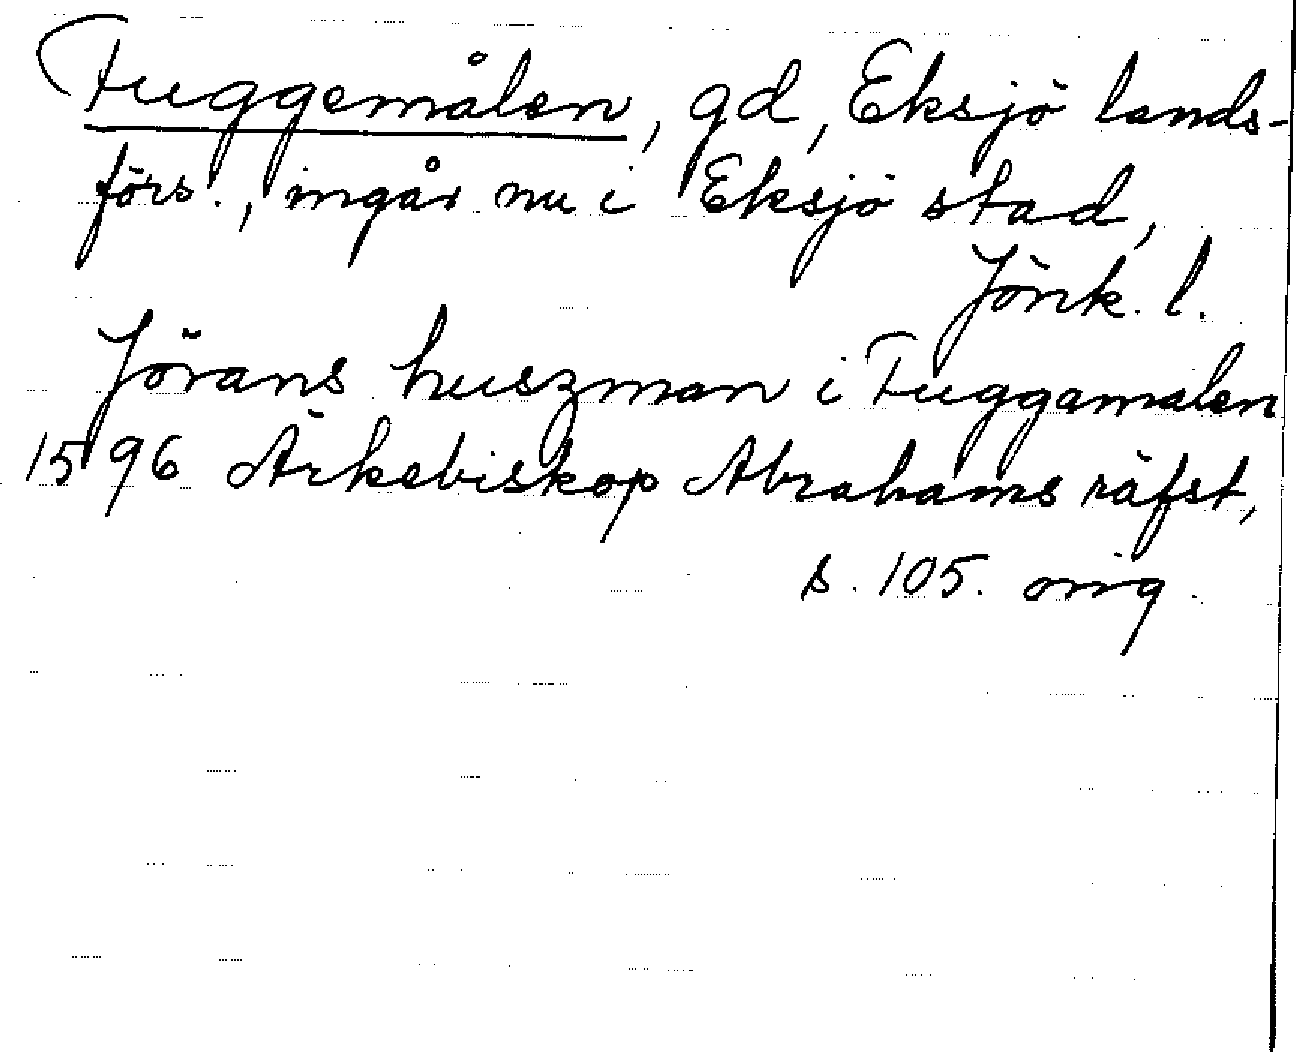 Fuggemålen, gd, Eksjö lands-
förs., ingår nu i Eksjö stad,
Jönk. l.
Jörans huszman i Fuggamalen
1596 Ärkebiskop Abrahams räfst,
s. 105. orig.